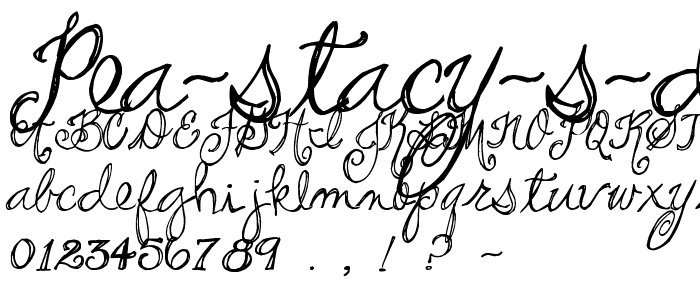 Pea~stacy~s~d
ABCDEFGHIJKLMNOPQRST
abcdefghijklmnopqrstuvwxy
0123456789 . , ! ? ~